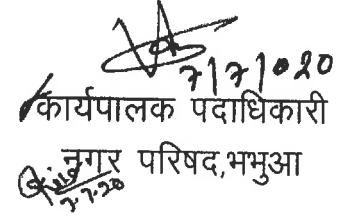 7/7/020
कार्यपालक पदाधिकारी
नगर परिषद,भभुआ
7.7.20